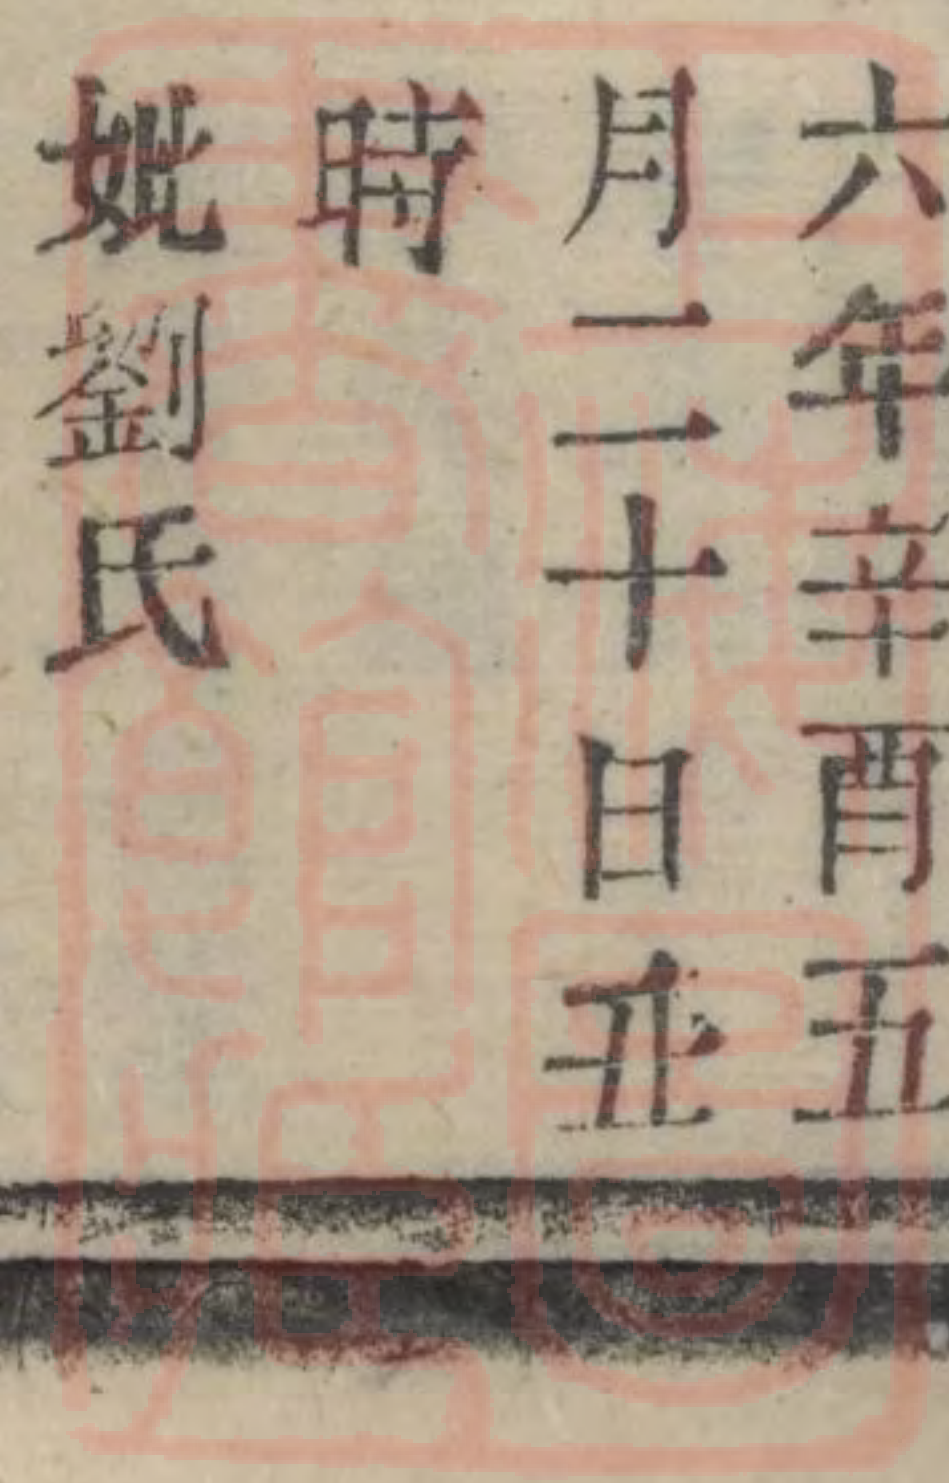 六年辛酉五
月二十日
時
妣劉氏